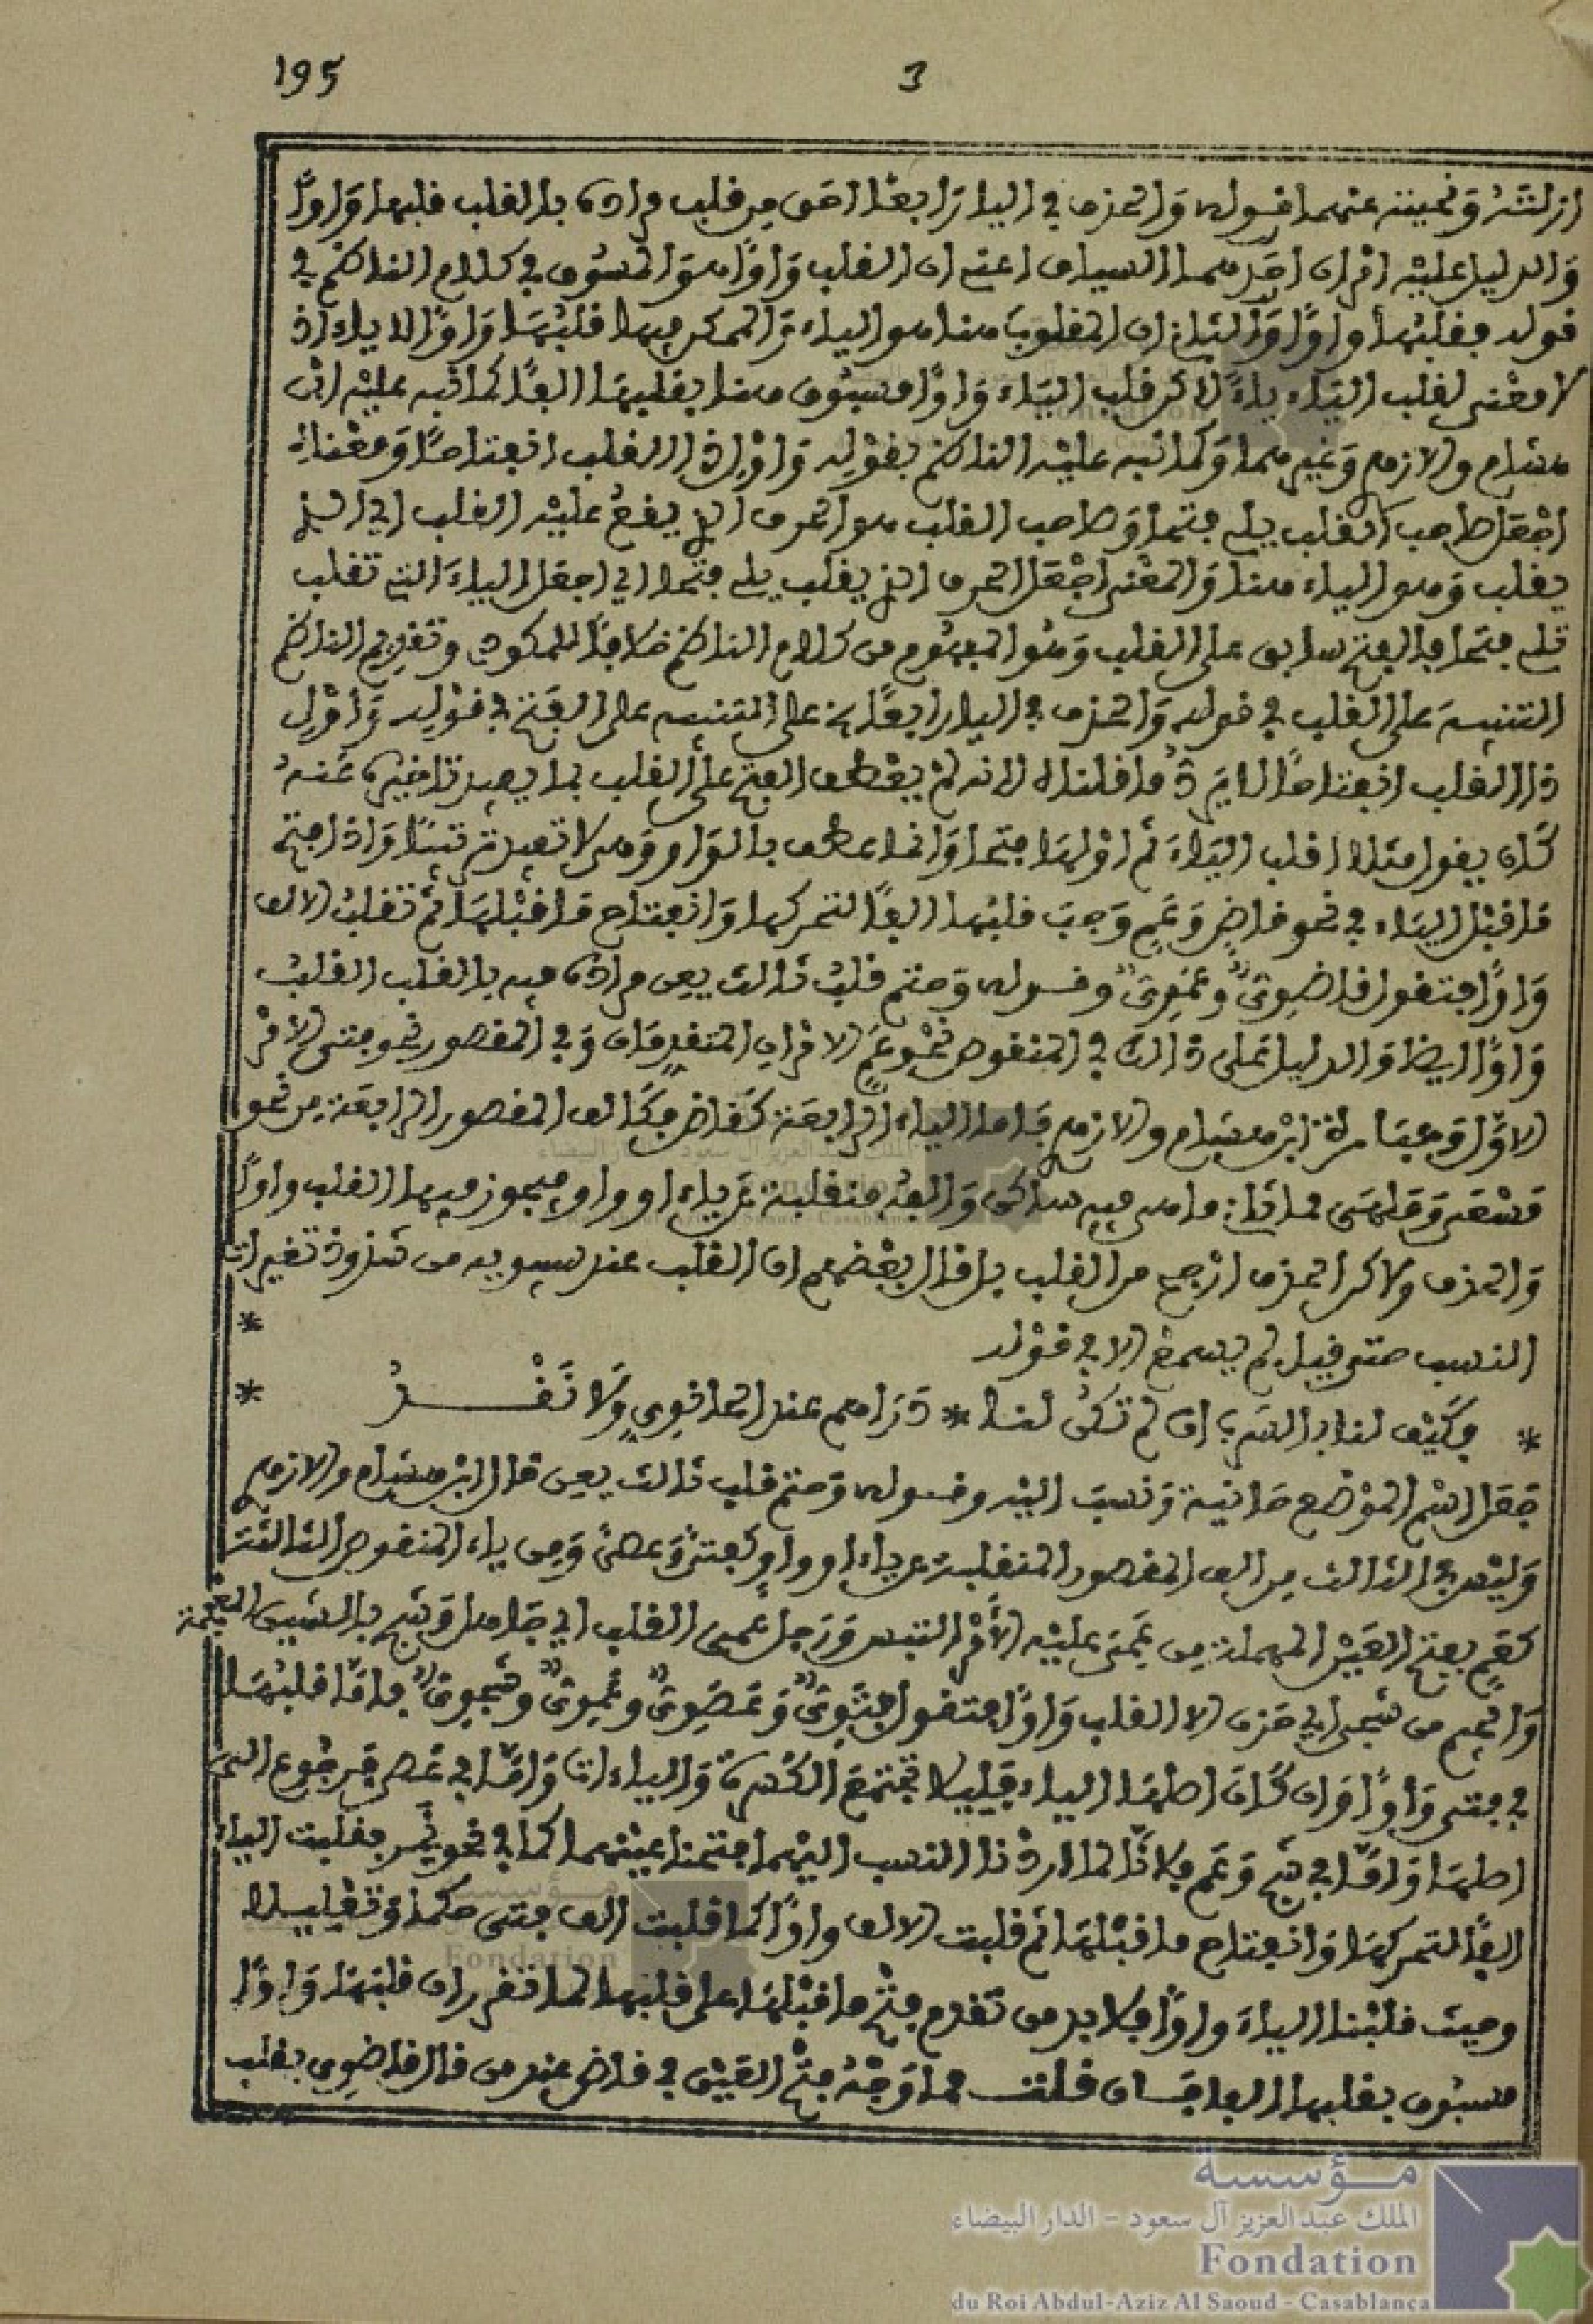 195
3
ازلته ونحيته عنهما قوله والحذف في اليا رابعا احق من قلب مراده بالقلب قلبها واوا
والدليل عليه امران احدهما السياق اعني ان القلب واوا هو المسوق في كلام الناظم في
قوله فقلبها واوا والثاني ان المقلوب هنا هو الياء والممكن فيها قلبها واوا لا ياء اذ
لا معنى لقلب الياء ياء لاكن قلب الياء واوا مسبوق هنا بقلبها الفا كما نبه عليه ابن
هشام والازهري وغيرهما وكما نبه عليه الناظم بقوله واول ذا القلب انفتاحا ومعناه
اجعل صاحب القلب يلي فتحا وصاحب القلب هو الحرف الذي يقع عليه القلب اي الذي
يقلب وهو الياء هنا والمعنى اجعل الحرف الذي يقلب يلي فتحا اي اجعل الياء التي تقلب
تلي فتحا فالفتح سابق على القلب وهو المفهوم من كلام الناظم خلافا للمكودي وتقديم الناظم
التنبيه على القلب في قوله والحذف في اليا رابعا الخ على التنبيه على الفتح في قوله واول
ذا القلب انفتاحا لا يرد ما قلناه لانه لم يعطف الفتح على القلب بما يفيد تاخيره عنه
كان يقول مثلا اقلب الياء ثم اولها فتحا وانما عطف بالواو وهي لا تفيد ترتيبا واذا فتح
ما قبل الياء في نحو قاض وعم وجب قلبها الفا لتحركها وانفتاح ما قبلها ثم تقلب الالف
واوا فتقول قاضوي وعموي وقوله وحتم قلب ثالث يعن مراده فيه بالقلب القلب
واوا ايضا والدليل على ذالك في المنقوص نحو عم الامران المتقدمان وفي المقصور نحو فتى الامر
الاول وعبارة ابن هشام والازهري فاما الياء الرابعة كقاض فكالف المقصور الرابعة من نحو
مسعى وملهى مما ثانيه ساكن والفه منقلبة عن ياء او واو فيجوز فيها القلب واوا
والحذف ولاكن الحذف ارجح من القلب بل قال بعضهم ان القلب عند سيبويه من شذوذ تغيرات
النسب حتى قيل لم يسمع الا في قوله *
* وكيف لنا بالشرب ان لم تكن لنا * دراهم عند الحانوي ولا نقد *
جعل اسم الموضع حانية ونسب اليه وقوله وحتم قلب ثالث يعن قال ابن هشام والازهري
وليس في الثالث من الف المقصور المنقلبة عن ياء او واو كفتى وعصى ومن ياء المنقوص الثالثة
كعم بفتح العين المهملة من عمي عليه الامر التبس ورجل عمي القلب اي جاهل وشج بالشين المعجمة
والجيم من شجي اي حزن الا القلب واوا فتقول فتوي وعصوي وعموي وشجوي فاما قلبها
في فتى واوا وان كان اصلها الياء فليلا تجتمع الكسرة والياءات واما في عصى فرجوع الى
اصلها واما في شج وعم فلانا لما اردنا النسب اليهما فتحنا عينهما كما في نحو نمر فقلبت الياء
الفا لتحركها وانفتاح ما قبلها ثم قلبت الالف واوا كما قلبت الف فتى حكما وتعليلا
وحيث قلبنا الياء واوا فلا بد من تقدم فتح ما قبلها على قلبها لما تقرر ان قلبها واوا
مسبوق بقلبها الفا فان قلت فما وجه فتح العين في قاض عند من قال قاضوي بقلب
مؤسسة
الملك عبد العزيز آل سعود - الدار البيضاء
Fondation
du Roi Abdul-Aziz Al Saoud - Casablanca